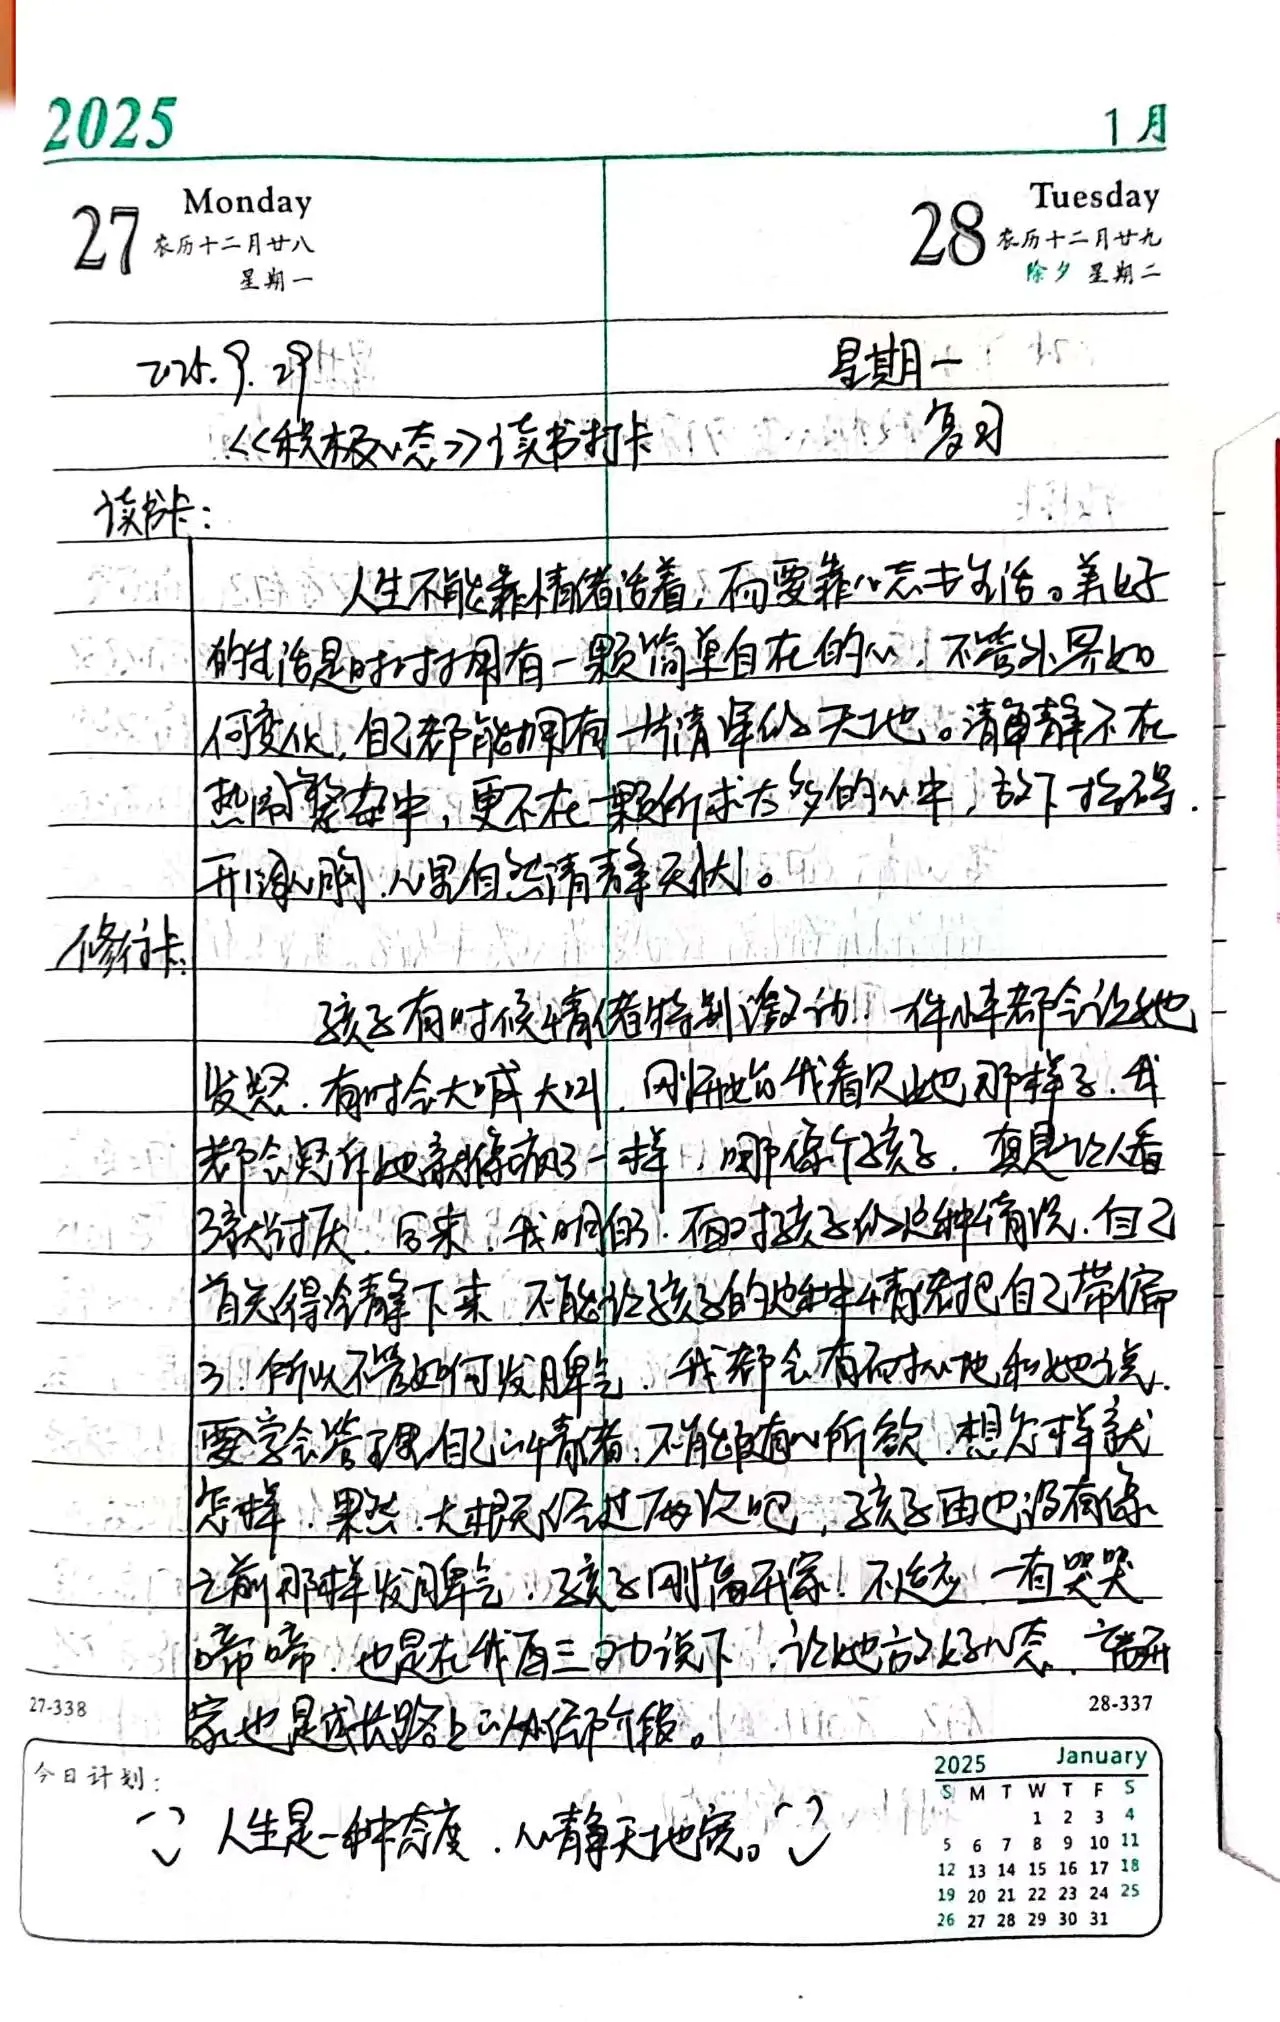 2025 1月
27 Monday 农历十二月廿八 星期一
28 Tuesday 农历十二月廿九 除夕 星期二
2025.9.29 星期一
《积极心态》读书打卡 复习
读书卡:
人生不能靠情绪活着,而要靠心态去生活。美好
的生活是时时拥有一颗简单自在的心,不管外界如
何变化,自己都能拥有一片清净的天地。清净静不在
热闹繁杂中,更不在一颗所求太多的心中,放下拾得.
开阔心胸,心里自然清静无忧。
修行卡:
孩子有时候情绪特别激动,一件小事都会让她
发怒,有时会大喊大叫,刚开始我看见她那样子,我
都会怒斥她就像疯了一样,哪像个孩子,真是让人看
了就讨厌,后来,我明白,面对孩子的这种情况,自己
首先得冷静下来,不能让孩子的这种情绪把自己带偏
了,所以不管如何发脾气,我都会有耐心地和她说,
要学会管理自己的情绪,不能随心所欲,想怎样就
怎样,果然,大概经过两次吧,孩子再也没有像
之前那样发脾气,孩子刚离开家,不适应,一直哭哭
啼啼,也是在我再三劝说下,让她放好心态,离开
家也是成长路上的阶段。
27-338 28-337
今日计划:
人生是一种态度,心静天地宽。
2025 January
S M T W T F S
1 2 3 4
5 6 7 8 9 10 11
12 13 14 15 16 17 18
19 20 21 22 23 24 25
26 27 28 29 30 31